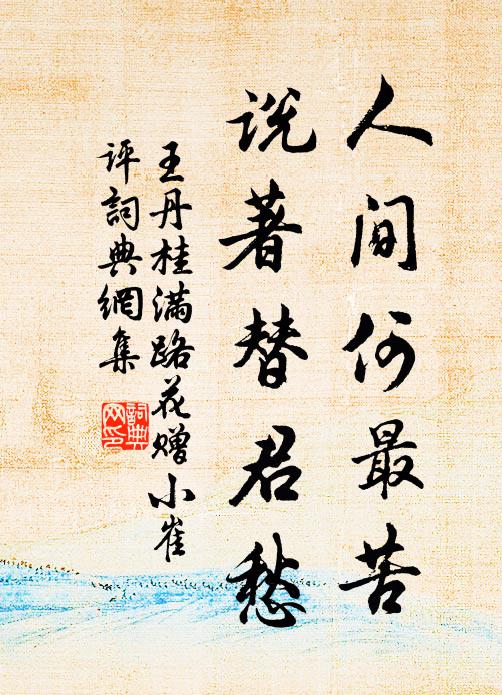 人间何最苦
说著替君愁
王丹桂满路花赠小崔
评词典网集
词典网印